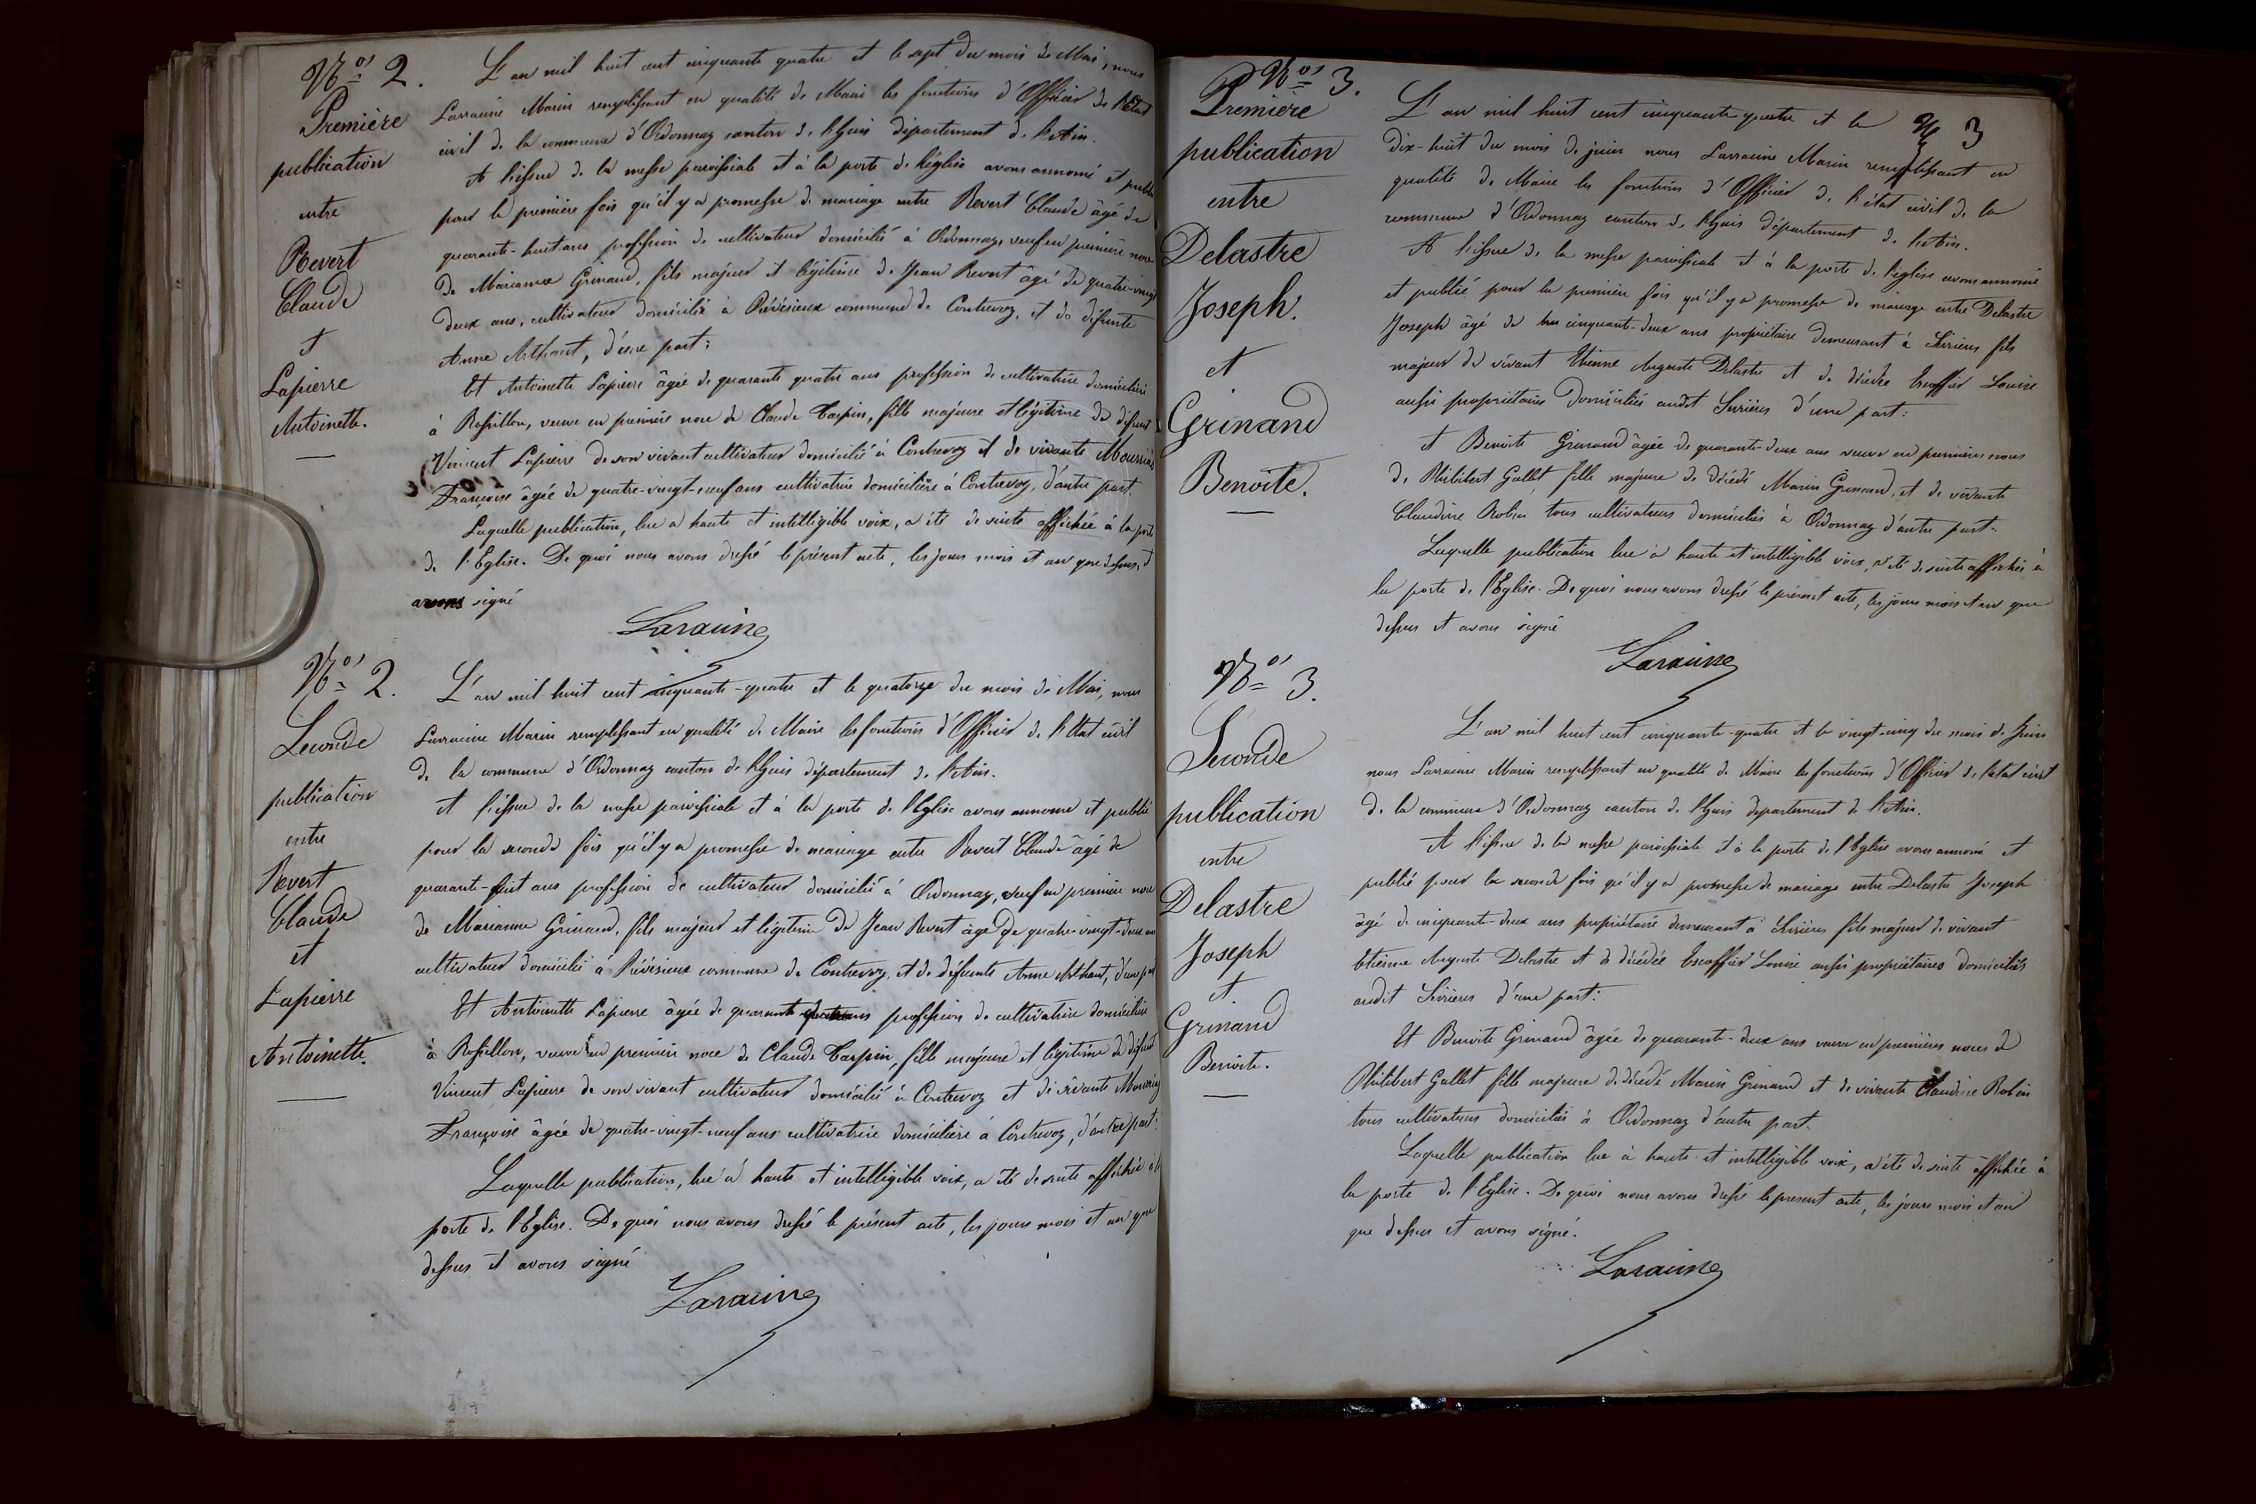 Nos 2.
Première
publication
entre
Revert
Claude
et
Lapierre
Antoinette.
L'an mil huit cent cinquante quatre et le sept du mois de Mai, nous
Larraine Marin remplissant en qualité de Maire les fonctions d'Officier de l'Etat
civil de la commune d'Ordonnaz canton de Lhuis département de l'Ain.
A l'issue de la messe paroissiale et à la porte de l'église avons annoncé et publié
pour la première fois qu'il y a promesse de mariage entre Revert Claude âgé de
quarante-huit ans profession de cultivateur domicilié à Ordonnaz, veuf en première noce
de Marianne Grinand, fils majeur et légitime de Jean Revert âgé de quatre-vingt
deux ans, cultivateur domicilié à commune de Contrevoz, et de défunte
Anne Arthaut, d'une part;
Et Antoinette Lapierre âgée de quarante quatre ans profession de cultivatrice domiciliée
à Rossillon, veuve en première noce de Claude Carpin, fille majeure et légitime de défunt
Vincent Lapierre de son vivant cultivateur domicilié à Contrevoz et de vivante
Françoise âgée de quatre-vingt-neuf ans cultivatrice domicilière à Contrevoz, d'autre part.
Laquelle publication, lue à haute et intelligible voix, a été de suite affichée à la porte
de l'Eglise. De quoi nous avons dressé le présent acte, les jour mois et an que dessus, et
avons signé
Laraine
Nos 2.
Seconde
publication
entre
Revert
Claude
et
Lapierre
Antoinette.
L'an mil huit cent cinquante-quatre et le quatorze du mois de Mai, nous
Larraine Marin remplissant en qualité de Maire les fonctions d'Officier de l'Etat civil
de la commune d'Ordonnaz canton de Lhuis département de l'Ain.
A l'issue de la messe paroissiale et à la porte de l'Eglise avons annoncé et publié
pour la seconde fois qu'il y a promesse de mariage entre Revert Claude âgé de
quarante-huit ans profession de cultivateur domicilié à Ordonnaz, veuf en première noce
de Marianne Grinand, fils majeur et légitime de Jean Revert âgé de quatre-vingt-deux ans
cultivateur domicilié à commune de Contrevoz, et de défunte Anne Arthaut, d'une part
Et Antoinette Lapierre âgée de quarante quatre ans profession de cultivatrice domiciliée
à Rossillon, veuve en première noce de Claude Carpin, fille majeure et légitime de défunt
Vincent Lapierre de son vivant cultivateur domicilié à Contrevoz et de vivante
Françoise âgée de quatre-vingt-neuf ans cultivatrice domicilière à Contrevoz, d'autre part:
Laquelle publication, lue à haute et intelligible voix, a été de suite affichée à la
porte de l'Eglise. De quoi nous avons dressé le présent acte, les jour mois et an que
dessus et avons signé
Laraine
Nos 3.
Première
publication
entre
Delastre
Joseph.
et
Grinand
Benoite.
L'an mil huit cent cinquante quatre et le
No 3
dix-huit du mois de juin nous Larraine Marin remplissant en
qualité de Maire les fonctions d'Officier de l'état civil de la
commune d'Ordonnaz canton de Lhuis département de l'Ain.
A l'issue de la messe paroissiale et à la porte de l'église avons annoncé
et publié pour la première fois qu'il y a promesse de mariage entre Delastre
Joseph âgé de cinquante-deux ans propriétaire demeurant à fils
majeur de vivant Etienne Auguste Delastre et de décédée Escoffier Louise
aussi propriétaires domiciliés audit d'une part:
et Benoite Grinand âgée de quarante-deux ans veuve en premières noces
de Philibert Gallet fille majeure de décédé Marin Grinand, et de vivante
Claudine Robin tous cultivateurs domiciliés à Ordonnaz d'autre part.
Laquelle publication lue à haute et intelligible voix, a été de suite affichée à
la porte de l'Eglise. De quoi nous avons dressé le présent acte, les jour mois et an que
dessus et avons signé
Laraine
Nos 3.
Seconde
publication
entre
Delastre
Joseph
et
Grinand
Benoite.
L'an mil huit cent cinquante-quatre et le vingt-cinq du mois de Juin
nous Larraine Marin remplissant en qualité de Maire les fonctions d'Officier de l'état civil
de la commune d'Ordonnaz canton de Lhuis département de l'Ain.
A l'issue de la messe paroissiale et à la porte de l'Eglise avons annoncé et
publié pour la seconde fois qu'il y a promesse de mariage entre Delastre Joseph
âgé de cinquante-deux ans propriétaire demeurant à fils majeur de vivant
Etienne Auguste Delastre et de décédée Escoffier Louise aussi propriétaires domiciliés
audit d'une part:
Et Benoite Grinand âgée de quarante-deux ans veuve en premières noces de
Philibert Gallet fille majeure de décédé Marin Grinand et de vivante Claudine Robin
tous cultivateurs domiciliés à Ordonnaz d'autre part.
Laquelle publication lue à haute et intelligible voix, a été de suite affichée à
la porte de l'Eglise. De quoi nous avons dressé le présent acte, les jour mois et an
que dessus et avons signé.
Laraine